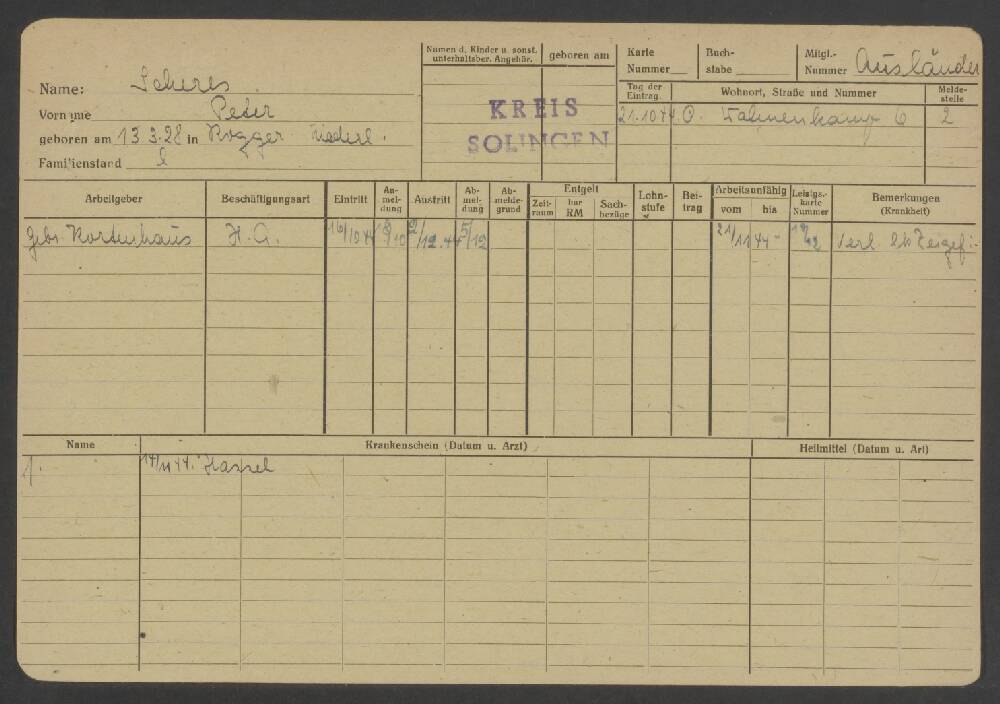 Namen d. Kinder u. sonst. unterhaltsber. Angehör.
geboren am
Karte Nummer
Buchstabe
Mitgl.-Nummer Ausländer
Name: Scheres
Vorname Peter
geboren am 13.3.28 in Rogger Niederl.
Familienstand l
KREIS
SOLINGEN
Tag der Eintrag.
Wohnort, Straße und Nummer
Meldestelle
21.10.44 O. 6 2
Arbeitgeber
Beschäftigungsart
Eintritt
Anmeldung
Austritt
Abmeldung
Abmeldegrund
Entgelt
Zeitraum
bar RM
Sachbezüge
Lohnstufe
Beitrag
Arbeitsunfähig
vom
bis
Leistgs.karte Nummer
Bemerkungen (Krankheit)
Gebr. H.A. 16/10 44 18/10 2/12.44 5/12 21/11 44 - Verl. Zeigef.
Name
Krankenschein (Datum u. Arzt)
Heilmittel (Datum u. Art)
14/11 44.